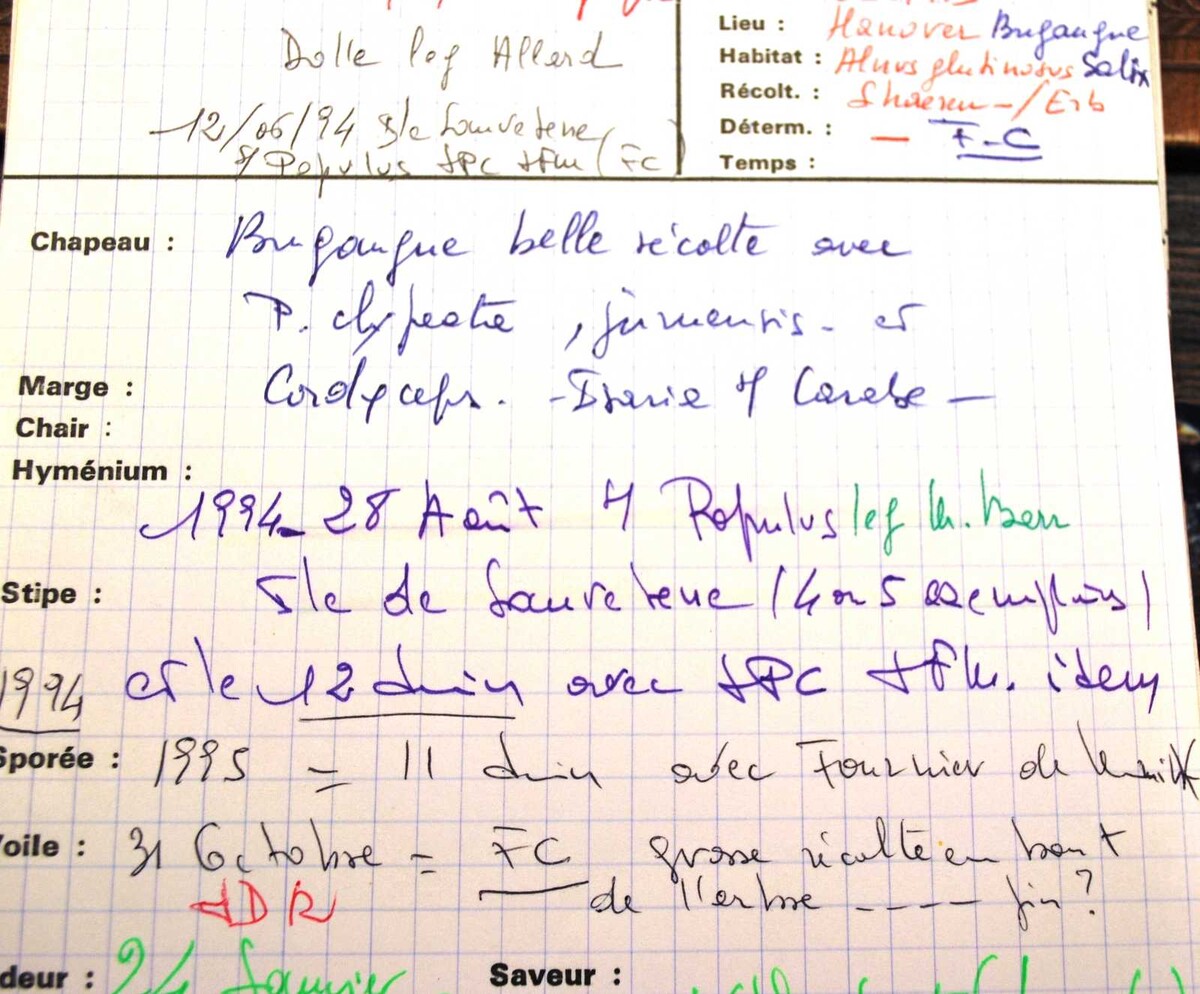 Dolle leg Allard
12/06/94 Isle Sauveterre
s/ Populus JPC JFM (FC)
Lieu : Hanover Bugangue
Habitat : Alnus glutinosus Salix
Récolt. : / Erb
Déterm. : — F-C
Temps :
Chapeau : Bugangue belle récolte avec
P. clypeata , jurnensis - et
Marge : Cordyceps. - Isaria s/ Carabe —
Chair :
Hyménium :
1994 - 28 Août s/ Populus leg
Stipe : Isle de Sauveterre (4 ou 5 exemplaires)
1994 et le 12 Juin avec JPC JFM. idem
Sporée : 1995 = 11 Juin avec Fournier de
Voile : 31 Octobre = FC grosse récolte en bout
JDR de l'erbse ---- fin ?
deur : 24 Janvier Saveur :